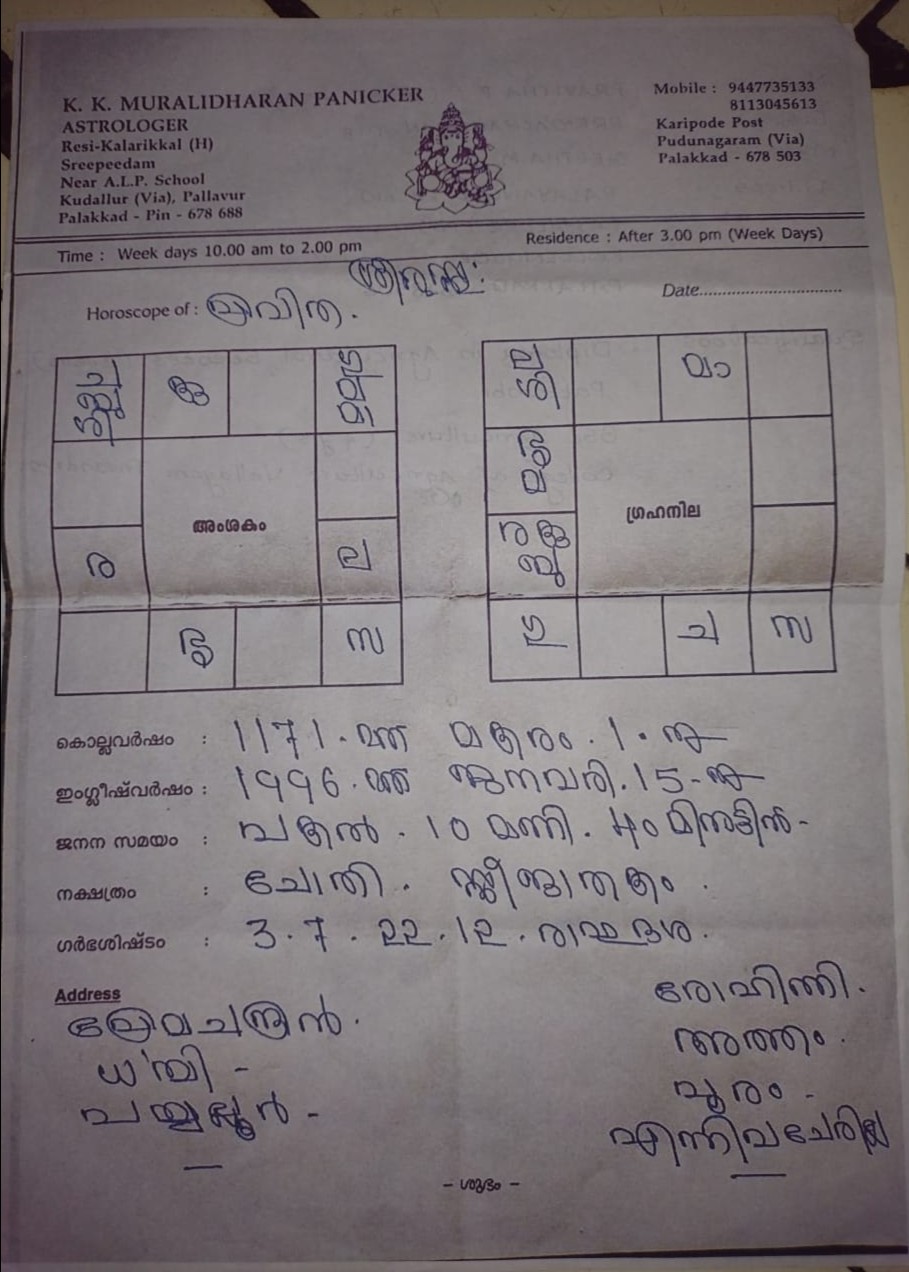 K. K. MURALIDHARAN PANICKER
ASTROLOGER
Resi-Kalarikkal (H)
Sreepeedam
Near A.L.P. School
Kudallur (Via), Pallavur
Palakkad - Pin - 678 688
Mobile : 9447735133
8113045613
Karipode Post
Pudunagaram (Via)
Palakkad - 678 503
Time : Week days 10.00 am to 2.00 pm
Residence : After 3.00 pm (Week Days)
Date................................
Horoscope of : പ്രവിത.
അംശകം
ര
ല
സ
ഗ്രഹനില
മാ
ഗു
ച
സ
കൊല്ലവർഷം : 1171.മത മകരം.1.നു
ഇംഗ്ലീഷ്‌വർഷം : 1996.മത ജനുവരി.15-നു
ജനന സമയം : പകൽ. 10 മണി. 40 മിനുട്ടിൻ-
നക്ഷത്രം : ചോതി. സ്ത്രീജാതകം.
ഗർഭശിഷ്ടം : 3.7.22.12. രാഹുദശ.
Address
പ്രേമചന്ദ്രൻ.
രോഹിണി.
അത്തം.
പൂരം-
എന്നിവചേരില്ല
- ശുഭം -